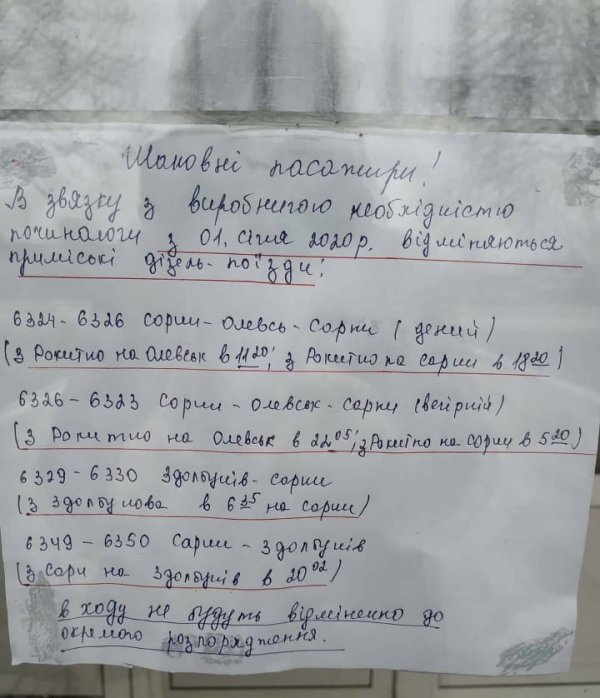 Шановні пасажири!
В звязку з виробничою необхідністю
починаючи з 01. січня 2020р. відміняються
приміські дізель-поїзди:
6324-6326 Сарни-Олевсь-Сарни (дений)
(з Рокитно на Олевськ в 11 20; з Рокитно на Сарни в 18 20)
6326-6323 Сарни-Олевськ-Сарни (вечірній)
(з Рокитно на Олевськ в 22 05; з Рокитно на Сарни в 5 20)
6329-6330 Здолбунів-Сарни
(з Здолбунова в 6 35 на Сарни)
6349-6350 Сарни-Здолбунів
(з Сарн на Здолбунів в 20 02)
в ходу не будуть відміненно до
окремого розпорядження.